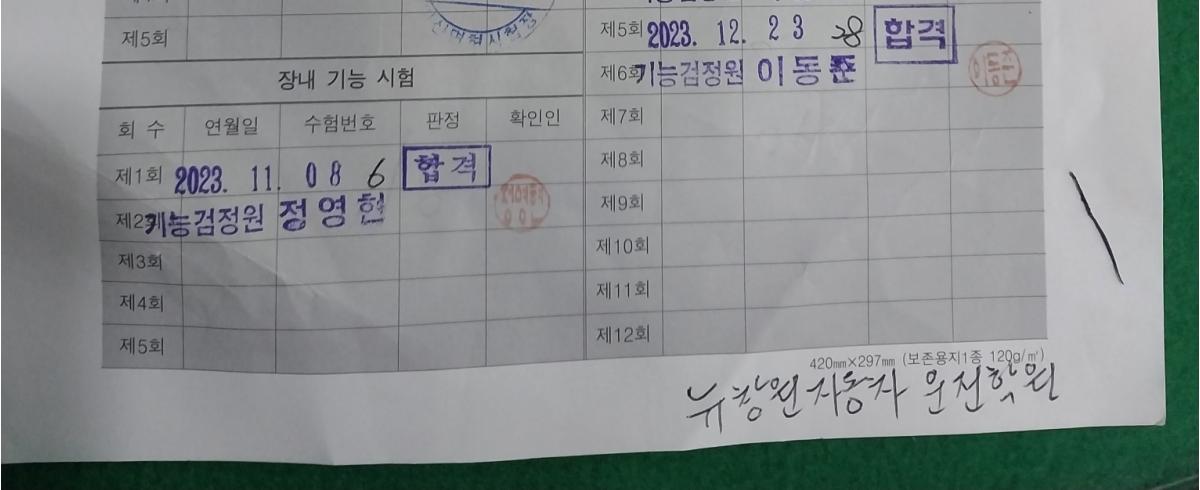 제5회
장내 기능 시험
회 수 연월일 수험번호 판정 확인인
제1회 2023. 11. 08 6 합격
제2 기능검정원 정영현
제3회
제4회
제5회
제5회 2023. 12. 23 28 합격
제6회 기능검정원 이동준
제7회
제8회
제9회
제10회
제11회
제12회
420mm×297mm (보존용지1종 120g/㎡)
뉴창원자동차 운전학원